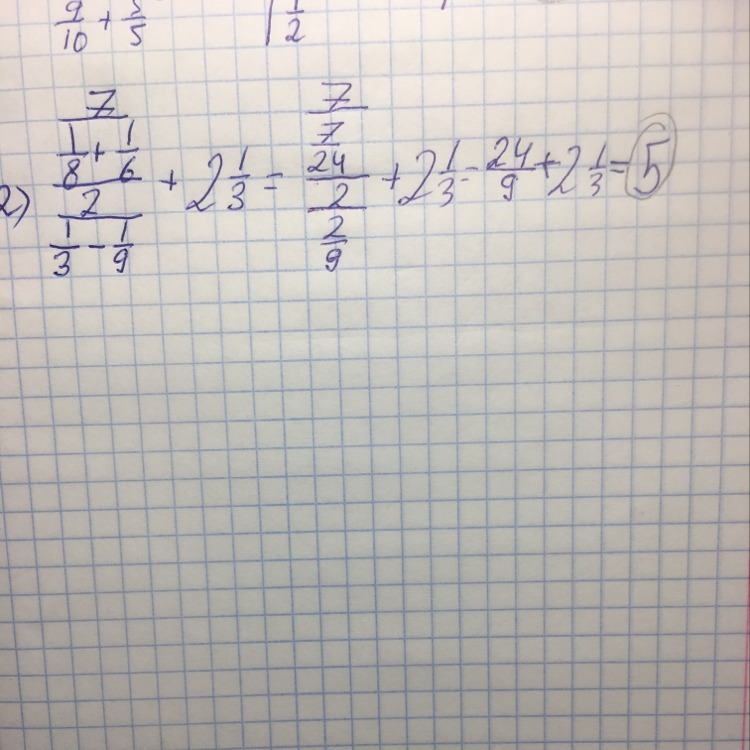 9/10 + 5/5   1/2
2) (7/(1/8 + 1/6))/(2/(1/3 - 1/9)) + 2 1/3 = (7/(7/24))/(2/(2/9)) + 2 1/3 = 24/9 + 2 1/3 = 5